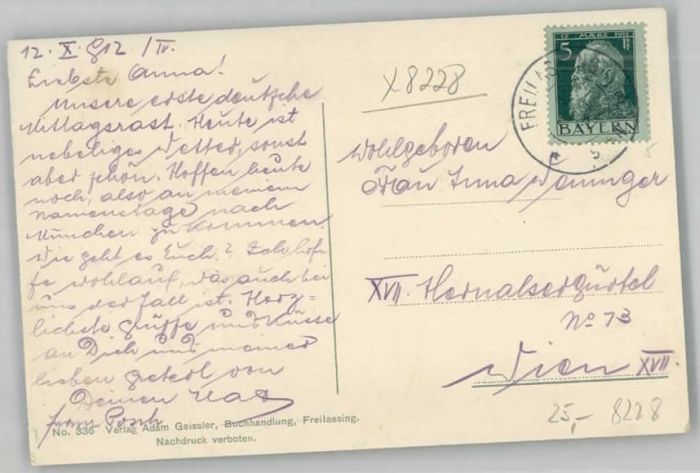 12. X. 912 /IV.
Anna!
Unsere erste deutsche
Mittagsrast. Heute ist
nebeliges Wetter, sonst
aber schön. Hoffen heute
noch, also an meinem
Namenstage nach
München zu kommen.
Wie geht es Euch? Ich hof-
fe wohlauf, was auch bei
uns der Fall ist. Herz-
lichste Grüße und Küsse
an Dich und meine
lieben von
Deinem
No. 336 Verlag Adam Geissler, Buchhandlung, Freilassing.
Nachdruck verboten.
X8228
12 MÄRZ 1911
5 Pf
BAYERN
FREILASSING
Wohlgeboren
Frau Anna
XVII. Hernalsergürtel
No 73
Wien XVII.
25,- 8228